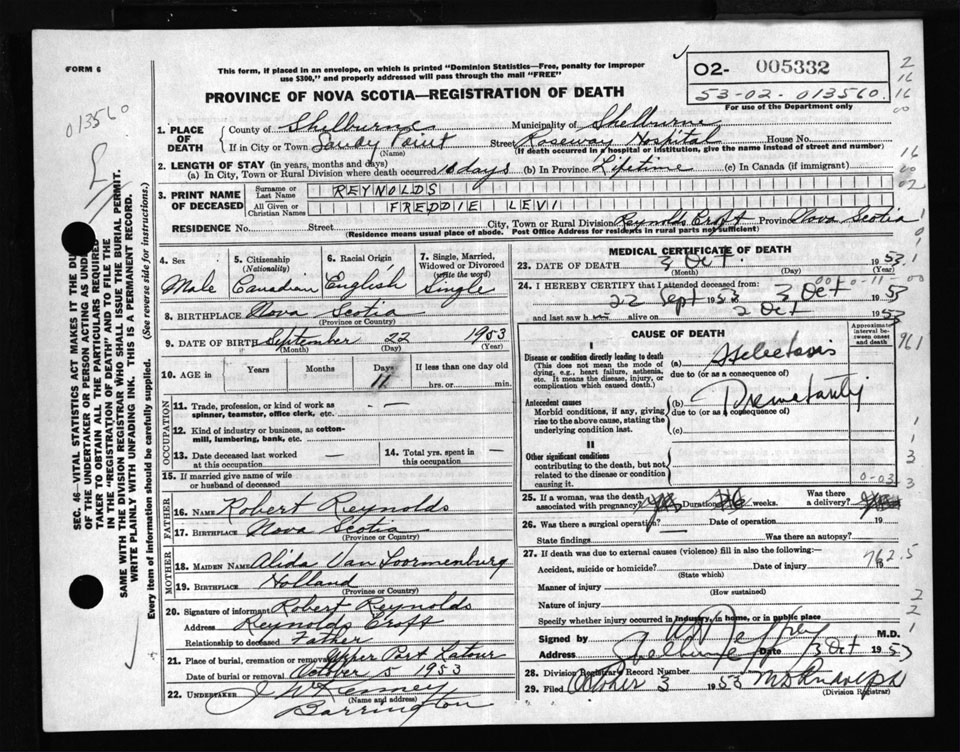 FORM 6
This form, if placed in an envelope, on which is printed "Dominion Statistics—Free, penalty for improper
use $300," and properly addressed will pass through the mail "FREE"
PROVINCE OF NOVA SCOTIA—REGISTRATION OF DEATH
02- 005332
53-02-013560
For use of the Department only
013560
1. PLACE OF DEATH
County of Shelburne Municipality of Shelburne
If in City or Town Sandy Point Street Roseway Hospital House No.
(Name) (If death occurred in a hospital or institution, give the name instead of street and number)
2. LENGTH OF STAY (in years, months and days)
(a) In City, Town or Rural Division where death occurred days (b) In Province Lifetime (c) In Canada (if immigrant)
3. PRINT NAME OF DECEASED
Surname or Last Name REYNOLDS
All Given or Christian Names FREDDIE LEVI
RESIDENCE No. Street City, Town or Rural Division Reynolds Croft Province Nova Scotia
(Residence means usual place of abode. Post Office Address for residents in rural parts not sufficient)
4. Sex Male
5. Citizenship (Nationality) Canadian
6. Racial Origin English
7. Single, Married, Widowed or Divorced (write the word) Single
8. BIRTHPLACE Nova Scotia
(Province or Country)
9. DATE OF BIRTH September 22 1953
(Month) (Day) (Year)
10. AGE in Years Months Days 11 If less than one day old
hrs. or min.
OCCUPATION
11. Trade, profession, or kind of work as spinner, teamster, office clerk, etc. —
12. Kind of industry or business, as cotton-mill, lumbering, bank, etc. —
13. Date deceased last worked at this occupation —
14. Total yrs. spent in this occupation —
15. If married give name of wife or husband of deceased
FATHER
16. NAME Robert Reynolds
17. BIRTHPLACE Nova Scotia
(Province or Country)
MOTHER
18. MAIDEN NAME Alida Van
19. BIRTHPLACE Holland
(Province or Country)
20. Signature of informant Robert Reynolds
Address Reynolds Croft
Relationship to deceased Father
21. Place of burial, cremation or removal Upper Port Latour
Date of burial or removal October 5 1953
22. UNDERTAKER
Barrington
(Name and address)
MEDICAL CERTIFICATE OF DEATH
23. DATE OF DEATH 3 Oct. 1953
(Month) (Day) (Year)
24. I HEREBY CERTIFY that I attended deceased from:
22 Sept 1953 3 Oct 1953
and last saw h alive on 2 Oct 1953
CAUSE OF DEATH
Approximate interval between onset and death
I
Disease or condition directly leading to death
(This does not mean the mode of dying, e.g., heart failure, asthenia, etc. It means the disease, injury, or complication which caused death.)
(a) Atelectasis
due to (or as a consequence of)
Antecedent causes
Morbid conditions, if any, giving rise to the above cause, stating the underlying condition last.
(b) Prematurity
due to (or as a consequence of)
(c)
II
Other significant conditions
contributing to the death, but not related to the disease or condition causing it.
25. If a woman, was the death associated with pregnancy Duration weeks. Was there a delivery?
26. Was there a surgical operation? Date of operation 19
State findings Was there an autopsy?
27. If death was due to external causes (violence) fill in also the following:—
762.5
Accident, suicide or homicide? Date of injury 19
(State which)
Manner of injury
(How sustained)
Nature of injury
Specify whether injury occurred in industry, in home, or in public place
Signed by M.D.
Address Shelburne Date 3 Oct 1953
28. Division Registrar's Record Number
29. Filed October 3 1953
(Division Registrar)
SEC. 46—VITAL STATISTICS ACT MAKES IT THE
OF THE UNDERTAKER OR PERSON ACTING AS
TAKER TO OBTAIN ALL THE PARTICULARS REQUIRED
IN THE "REGISTRATION OF DEATH" AND TO FILE THE
SAME WITH THE DIVISION REGISTRAR WHO SHALL ISSUE THE BURIAL PERMIT.
WRITE PLAINLY WITH UNFADING INK. THIS IS A PERMANENT RECORD.
Every item of information should be carefully supplied. (See reverse side for instructions.)